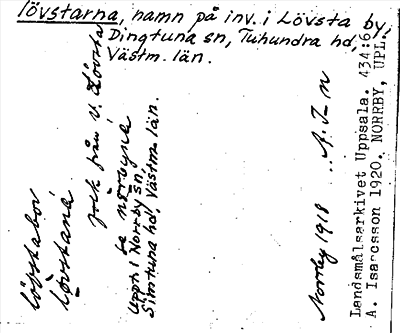 lövstarna, namn på inv. i Lövsta by,
Dingtuna sn, Tuhundra hd,
Västm. län.
lövstabor
lövstana
folk från V. Lövsta
te norbyna
Uppt. i Norrby sn,
Simtuna hd, Västm. län.
Norrby 1918 A. I-n
Landsmålsarkivet Uppsala. 434:6
A. Isarcsson 1920. NORRBY, UPL.